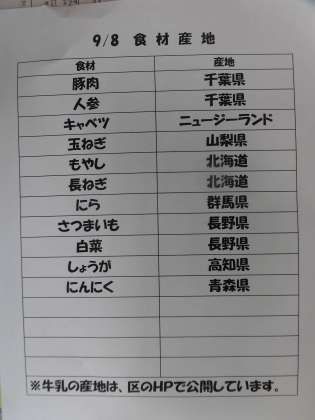 9/8 食材産地
食材 産地
豚肉 千葉県
人参 千葉県
キャベツ ニュージーランド
玉ねぎ 山梨県
もやし 北海道
長ねぎ 北海道
にら 群馬県
さつまいも 長野県
白菜 長野県
しょうが 高知県
にんにく 青森県
※牛乳の産地は、区のHPで公開しています。